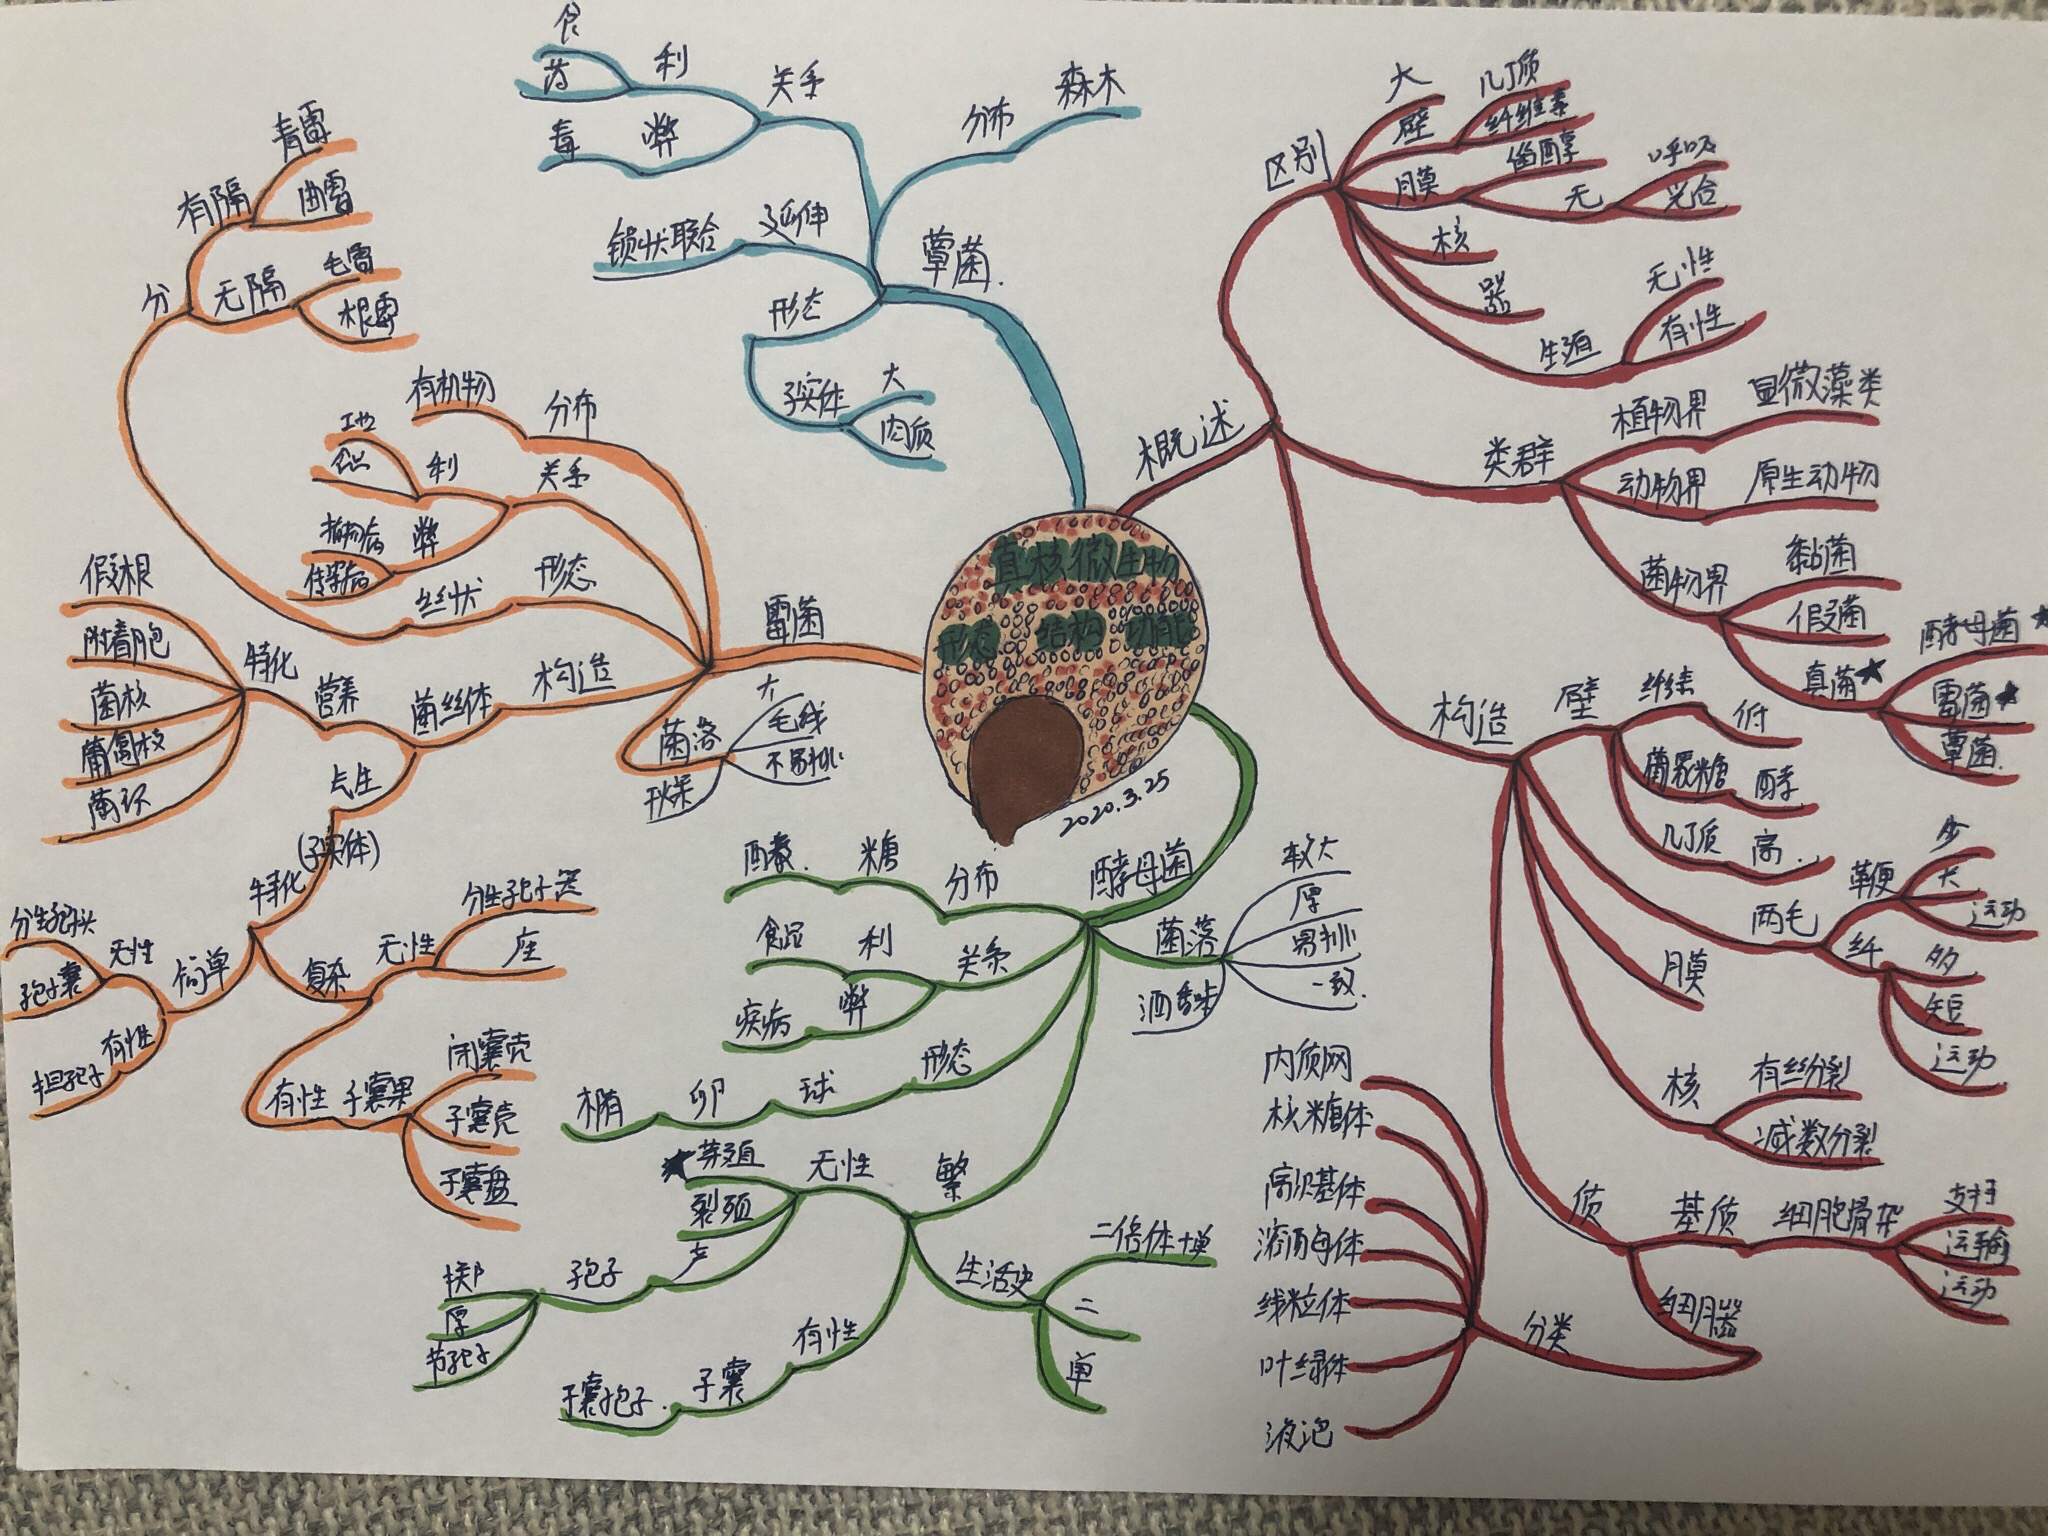 真核微生物
形态 结构 功能
2020.3.25
概述
区别
大
壁
几丁质
纤维素
膜
甾醇
无
呼吸
光合
核
器
生殖
无性
有性
类群
植物界
显微藻类
动物界
原生动物
菌物界
黏菌
假菌
真菌★
酵母菌★
霉菌★
蕈菌.
构造
壁
纤维
低
葡聚糖
酵
几丁质
高.
两毛
鞭
少
长
运动
纤
多
短
运动
膜
核
有丝分裂
减数分裂
质
基质
细胞骨架
支持
运输
运动
细胞器
分类
内质网
核糖体
高尔基体
溶酶体
线粒体
叶绿体
液泡
酵母菌
分布
糖
酉
关系
利
食品
弊
疾病
形态
球
卵
椭
繁
无性
★芽殖
裂殖
产
孢子
掷
厚
节孢子
有性
子囊
子囊孢子.
生活史
二倍体+单
二
单
菌落
较大
厚
易挑
一致.
酒香味
霉菌
分布
有机物
关系
利
工业
食品
弊
植物病
传染病
形态
丝状
分
有隔
青霉
曲霉
无隔
毛霉
根霉
构造
菌丝体
营养
特化
假根
附着胞
菌核
菌环
气生
(子实体)
特化
简单
无性
分生孢子头
孢子囊
有性
担孢子
复杂
无性
分生孢子器
座
有性
子囊果
闭囊壳
子囊壳
子囊盘
菌落
大
毛绒
不易挑
蕈菌.
分布
森木
关系
利
食
药
弊
毒
延伸
锁状联合
形态
子实体
大
肉质